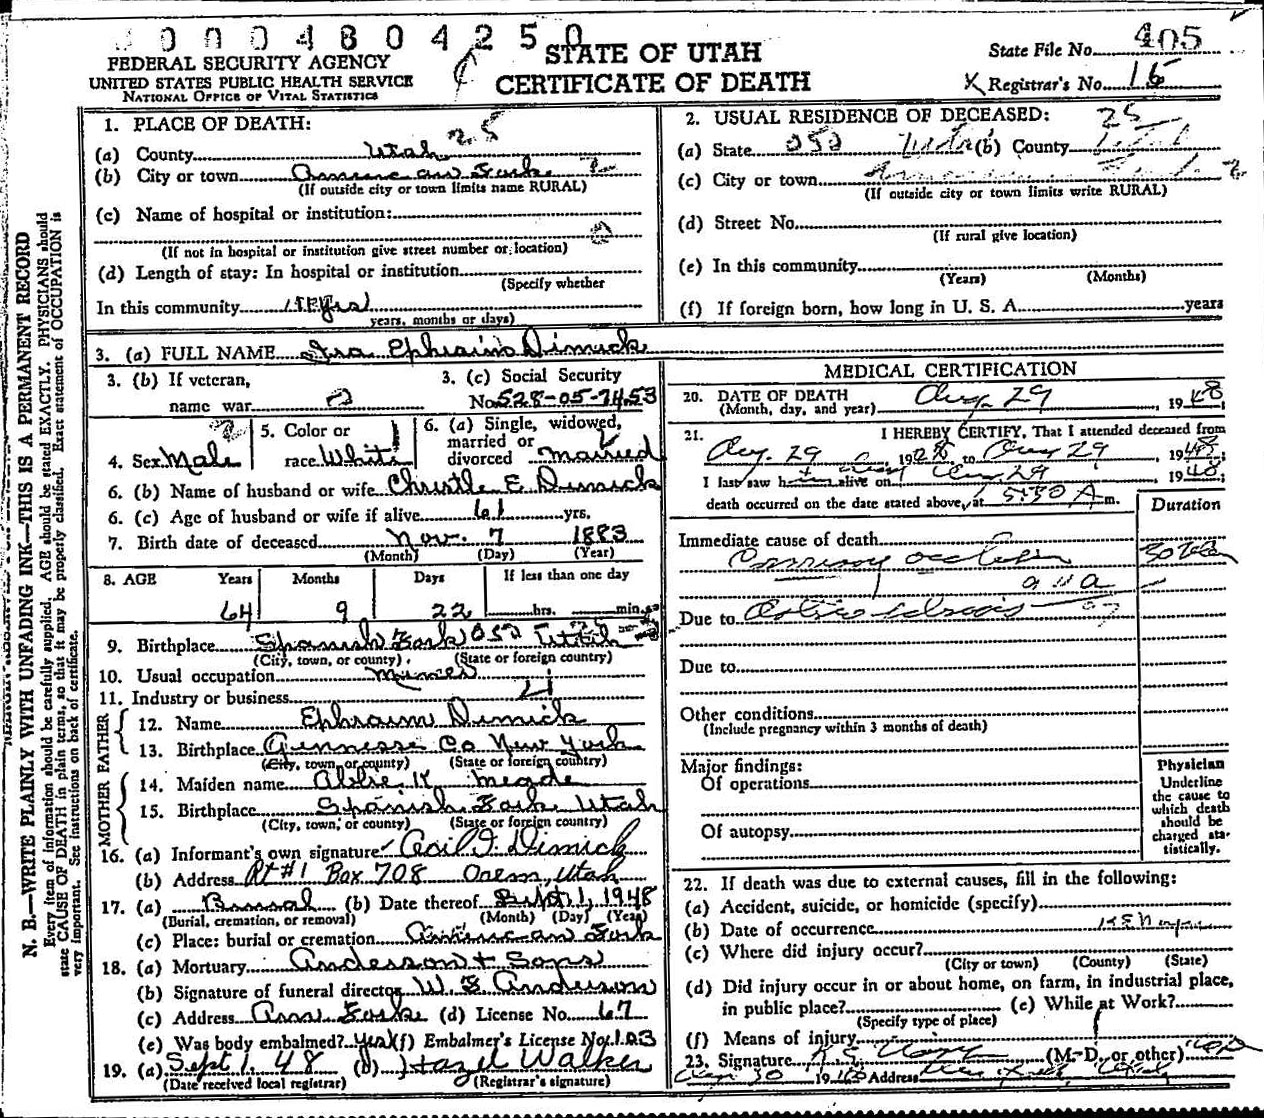 000480 4250
FEDERAL SECURITY AGENCY
UNITED STATES PUBLIC HEALTH SERVICE
NATIONAL OFFICE OF VITAL STATISTICS
STATE OF UTAH
CERTIFICATE OF DEATH
State File No. 405
X Registrar's No. 15
N. B.—WRITE PLAINLY WITH UNFADING INK—THIS IS A PERMANENT RECORD
Every item of information should be carefully supplied. AGE should be stated EXACTLY. PHYSICIANS should
state CAUSE OF DEATH in plain terms, so that it may be properly classified. Exact statement of OCCUPATION is
very important. See instructions on back of certificate.
1. PLACE OF DEATH: 25
(a) County Utah
(b) City or town American Fork
(If outside city or town limits name RURAL)
(c) Name of hospital or institution:
(If not in hospital or institution give street number or location)
(d) Length of stay: In hospital or institution
(Specify whether
In this community yrs
years, months or days)
2. USUAL RESIDENCE OF DECEASED: 25
(a) State 052 Utah (b) County Utah
(c) City or town American Fork 2
(If outside city or town limits write RURAL)
(d) Street No.
(If rural give location)
(e) In this community
(Years) (Months)
(f) If foreign born, how long in U. S. A. years
3. (a) FULL NAME Ira Ephraim Dimick
3. (b) If veteran,
name war 0
3. (c) Social Security
No. 528-05-7453
4. Sex Male
5. Color or
race White
6. (a) Single, widowed,
married or
divorced Married
6. (b) Name of husband or wife Christie E Dimick
6. (c) Age of husband or wife if alive 61 yrs.
7. Birth date of deceased Nov. 7 1883
(Month) (Day) (Year)
8. AGE Years Months Days If less than one day
64 9 22 hrs. min.
9. Birthplace Spanish Fork 052 Utah
(City, town, or county) (State or foreign country)
10. Usual occupation Miner
11. Industry or business
FATHER
12. Name Ephraim Dimick
13. Birthplace Gennesse Co New York
(City, town, or county) (State or foreign country)
MOTHER
14. Maiden name Abbie K
15. Birthplace Spanish Fork Utah
(City, town, or county) (State or foreign country)
16. (a) Informant's own signature Cecil I. Dimick
(b) Address Rt #1 Box 708 Orem, Utah
17. (a) Burial (b) Date thereof Sept 1, 1948
(Burial, cremation, or removal) (Month) (Day) (Year)
(c) Place: burial or cremation American Fork
18. (a) Mortuary Anderson + Sons
(b) Signature of funeral director W. E. Anderson
(c) Address Am. Fork (d) License No. 67
(e) Was body embalmed? Yes (f) Embalmer's License No. 103
19. (a) Sept 1. 48 (b) Hazel Walker
(Date received local registrar) (Registrar's signature)
MEDICAL CERTIFICATION
20. DATE OF DEATH
(Month, day, and year) Aug. 29, 1948
21. I HEREBY CERTIFY, That I attended deceased from
Aug. 29, 1948 to Aug 29, 1948;
I last saw him alive on Aug 29, 1948;
death occurred on the date stated above, at 5:30 A m.
Duration
Immediate cause of death
Coronary occlusion 30
Due to
Due to
Other conditions
(Include pregnancy within 3 months of death)
Major findings:
Of operations
Of autopsy
Physician
Underline
the cause to
which death
should be
charged sta-
tistically.
22. If death was due to external causes, fill in the following:
(a) Accident, suicide, or homicide (specify)
(b) Date of occurrence
(c) Where did injury occur?
(City or town) (County) (State)
(d) Did injury occur in or about home, on farm, in industrial place,
in public place? (e) While at Work?
(Specify type of place)
(f) Means of injury
23. Signature (M. D. or other)
Aug 30 1948 Address Am Fork, Utah